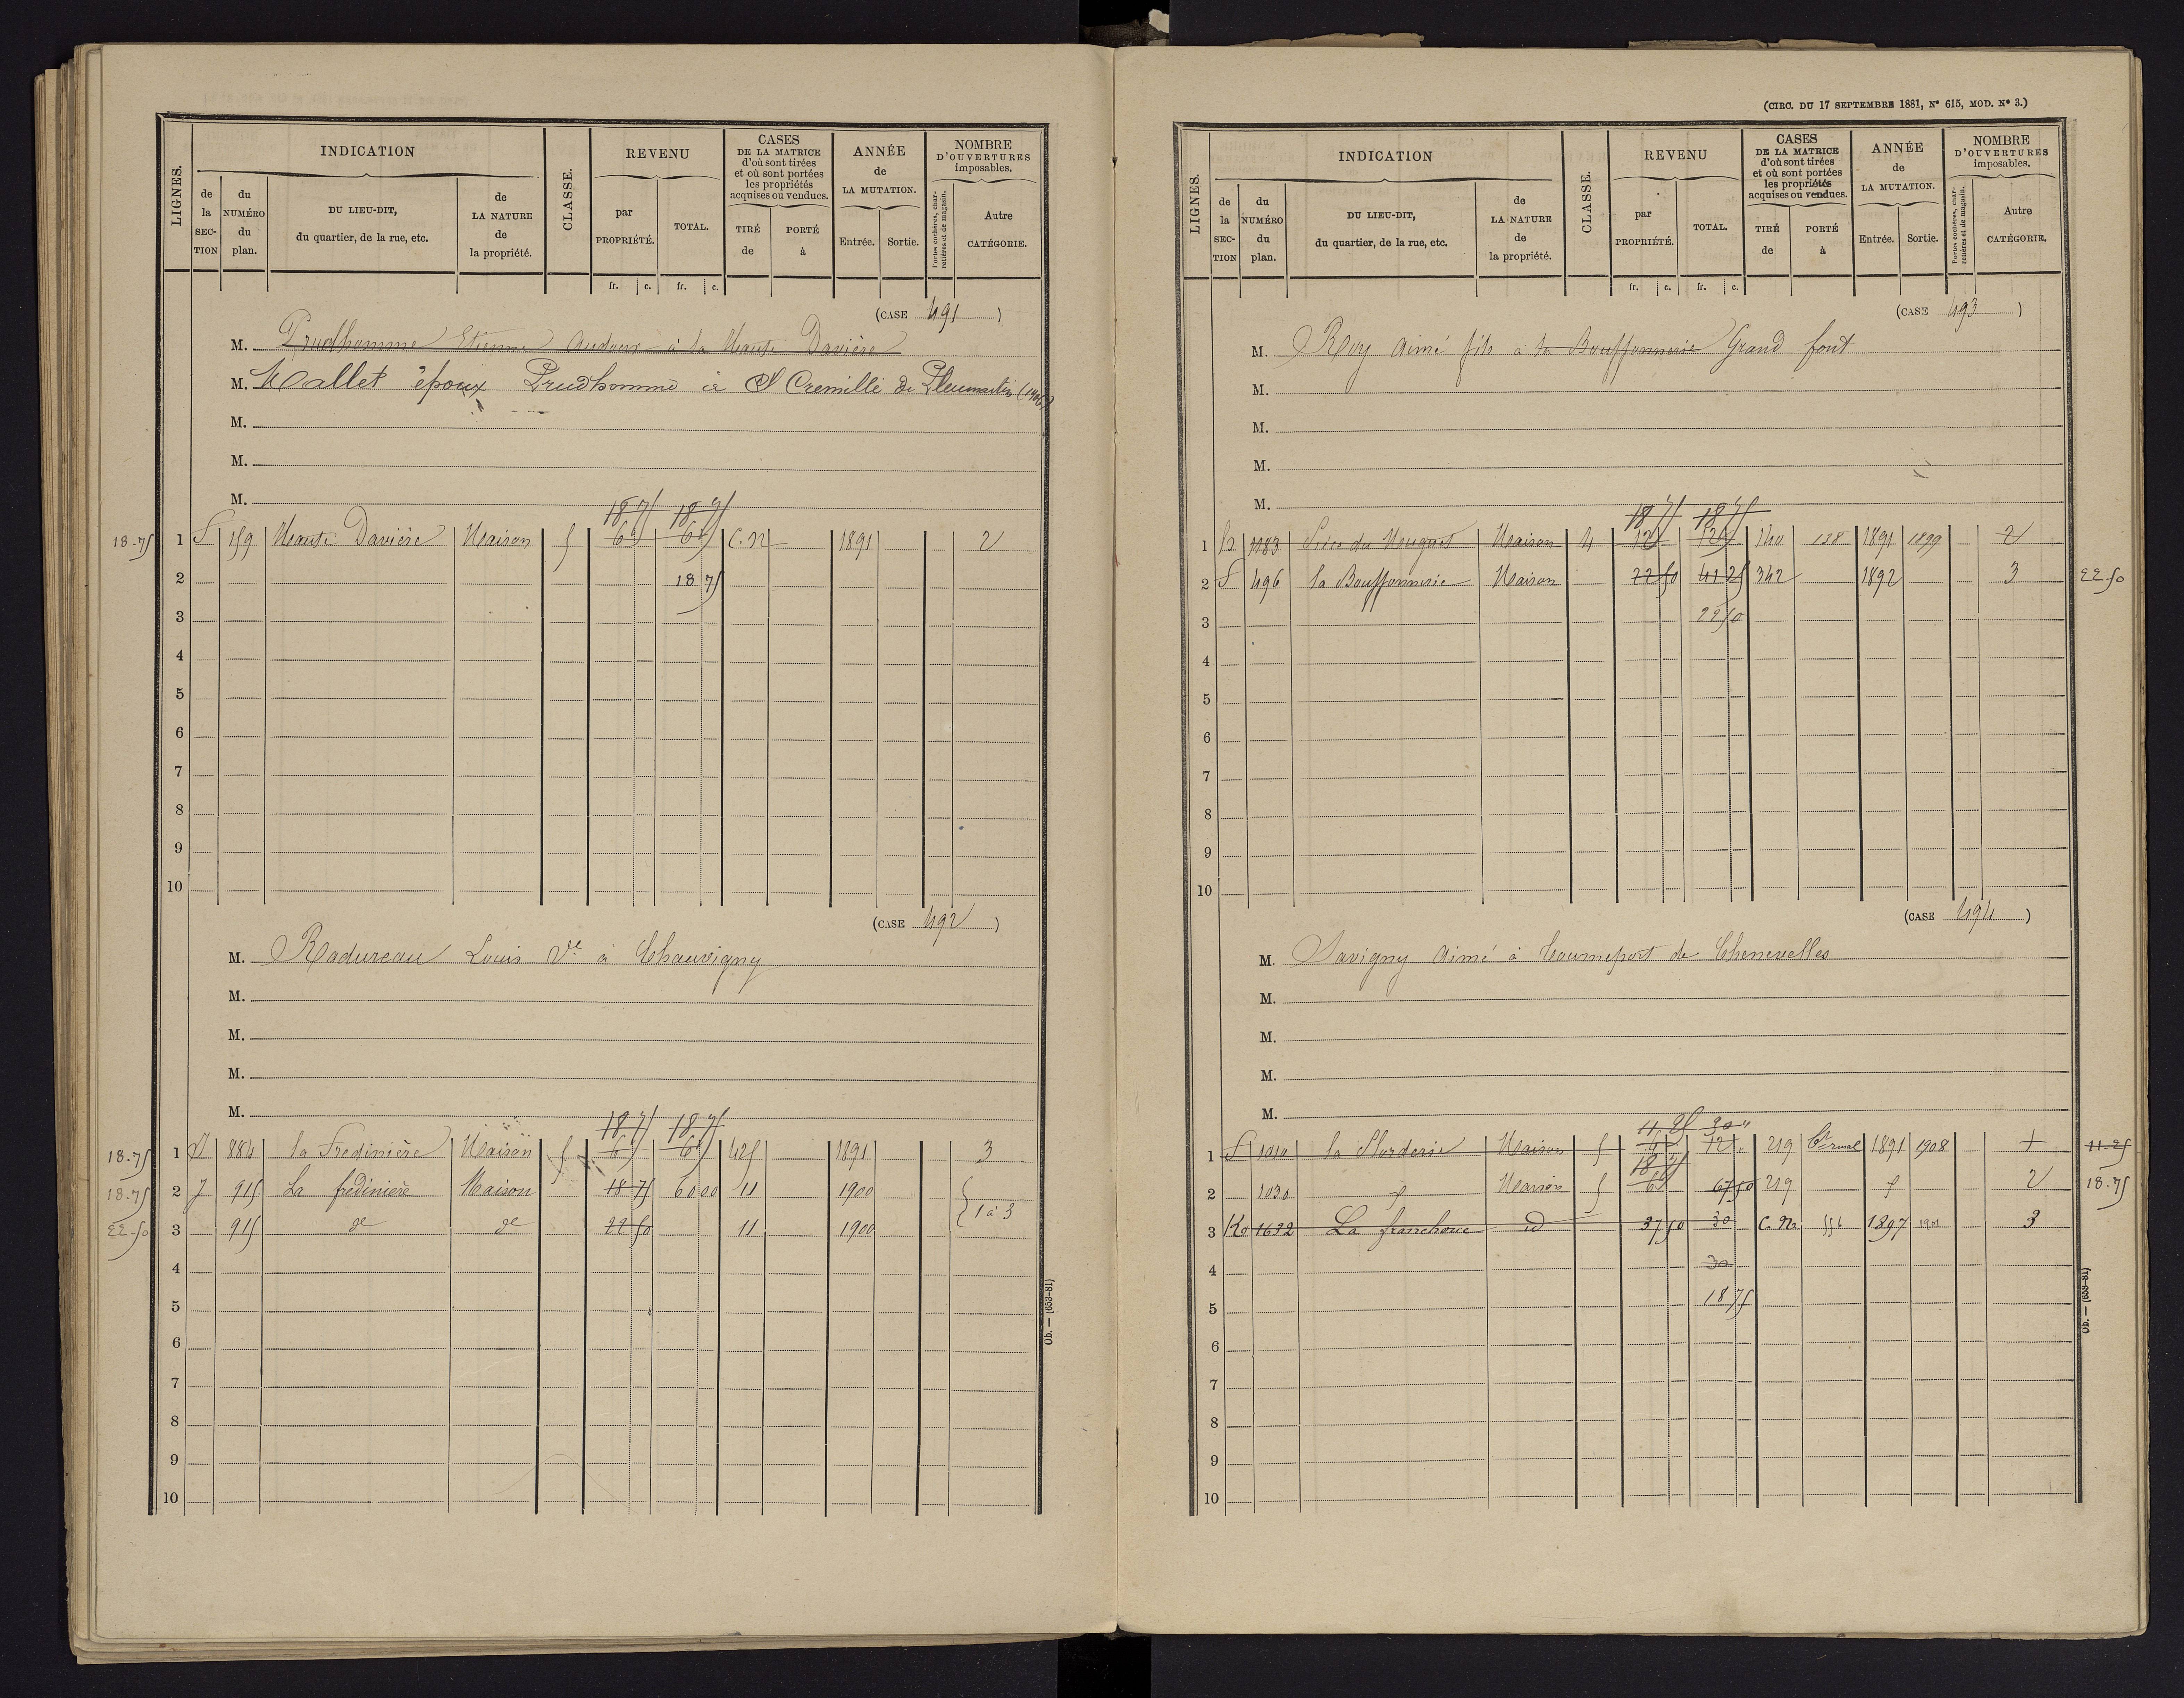 LIGNES.
INDICATION
de la SECTION
du NUMÉRO du plan.
DU LIEU-DIT, du quartier, de la rue, etc.
de LA NATURE de la propriété.
CLASSE.
REVENU
par PROPRIÉTÉ.
TOTAL.
CASES DE LA MATRICE d'où sont tirées et où sont portées les propriétés acquises ou vendues.
TIRÉ de
PORTÉ à
ANNÉE de LA MUTATION.
Entrée.
Sortie.
NOMBRE D'OUVERTURES imposables.
Portes cochères, charretières et de magasin.
Autre CATÉGORIE.
fr. c. fr. c.
(CASE 491)
M. Prudhomme Etienne à la Haute Davière
M. Mallet époux Prudhomme à Cremille de Pleumartin (1906)
M.
M.
M.
18 75 18 75
18.75 1 159 Haute Davière Maison 5 C. N 1891 2
2 18 75
3
4
5
6
7
8
9
10
(CASE 492)
M. Radureau Louis Ve à Chauvigny
M.
M.
M.
M.
18 75 18 75
18.75 1 J 884 la Fredinière Maison 5 425 1891 3
18.75 2 J 915 La fredinière Maison 18 75 60 00 11 1900
22.50 3 915 de de 22 50 11 1900 1 à 3
4
5
6
7
8
9
10
Ob. — (653-81)
(CIRC. DU 17 SEPTEMBRE 1881, N° 615, MOD. N° 3.)
LIGNES.
INDICATION
de la SECTION
du NUMÉRO du plan.
DU LIEU-DIT, du quartier, de la rue, etc.
de LA NATURE de la propriété.
CLASSE.
REVENU
par PROPRIÉTÉ.
TOTAL.
CASES DE LA MATRICE d'où sont tirées et où sont portées les propriétés acquises ou vendues.
TIRÉ de
PORTÉ à
ANNÉE de LA MUTATION.
Entrée.
Sortie.
NOMBRE D'OUVERTURES imposables.
Portes cochères, charretières et de magasin.
Autre CATÉGORIE.
fr. c. fr. c.
(CASE 493)
M. Roy Aimé fils à la Bouffonnerie Grand font
M.
M.
M.
M.
18 75 18 75
1 1183 Maison 4 140 138 1891 1899 2
2 496 la Bouffonnerie Maison 22 50 41 25 342 1892 3 22 50
3 22 50
4
5
6
7
8
9
10
(CASE 494)
M. Savigny Aimé à Tournefort de Chenevelles
M.
M.
M.
M.
11 25 30 "
1 1010 Maison 5 12 219 1891 1908 1 11.25
18 75
2 1030 Maison 5 67 50 219 2 18.75
3 1632 La franchoue id 37 50 30 C. Nle 556 1897 1901 3
4 30
5 18 75
6
7
8
9
10
Ob. — (653-81)